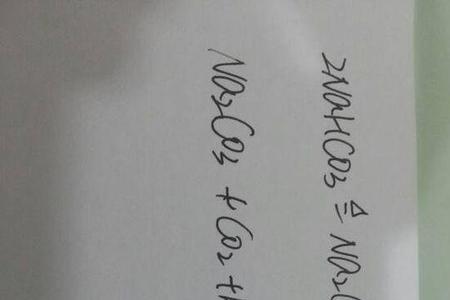 2NaHCO₃ ≜ Na₂
Na₂CO₃ + CO₂ +